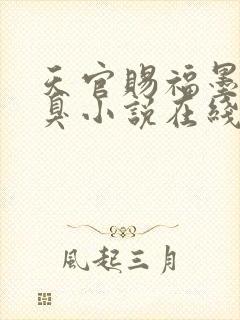 天官賜福墨
臭小説在綫
風起三月